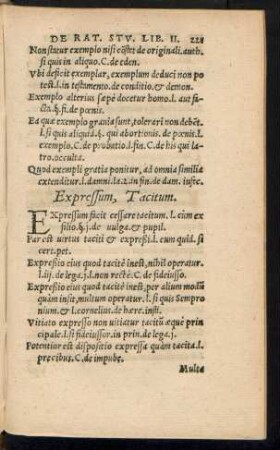 DE RAT. STV. LIB. II. 221
Non statur exemplo nisi cōstet de originali. auth.
si quis in aliquo. C. de eden.
Vbi deficit exemplar, exemplum deduci non po
test. l. in testamento. de conditio. & demon.
Exemplo alterius sæpè docetur homo. l. aut fa-
cta. §. fi. de pœnis.
Ea quæ exemplo grauia sunt, tolerari non debēt.
l. si quis aliquid. §. qui abortionis. de pœnis. l.
exemplo. C. de probatio. l. fin. C. de his qui la-
tro. occulta.
Quod exempli gratia ponitur, ad omnia similia
extenditur. l. damni. la. 2. in fin. de dam. infec.
Expressum, Tacitum.
EXpressum facit cessare tacitum. l. cùm ex
filio. §. j. de vulga. & pupil.
Par est uirtus taciti & expressi. l. cum quid. si
cert. pet.
Expressio eius quod tacitè inest, nihil operatur.
l. iij. de lega. j. l. non rectè. C. de fideiusso.
Expressio eius quod tacitè inest, per alium modū
quàm insit, multum operatur. l. si quis Sempro
nium. & l. cornelius. de hære. inst.
Vitiato expresso non uitiatur tacitū æquè prin
cipale. l. si fideiussor. in prin. de lega. j.
Potentior est dispositio expressa quàm tacita. l.
precibus. C. de impube.
Multa